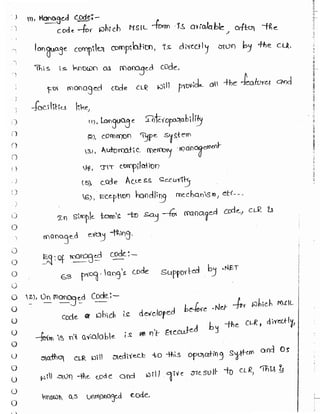 m. Managed code:-
code for which MSIL form is available, after the
language compiler compilation, is directly run by the CLR.
This is known as managed code.
for managed code CLR will provide all the features and
facilities like,
(1). Language Interoperability
(2). common Type System
(3). Automatic memory management
(4). JIT compilation
(5). code Access Security
(6). Exception handling mechanism, etc...
In simple term's to say for managed code, CLR is
managed every thing.
Eg: of managed code:-
68 prog. lang's code supported by .NET
(2). Un managed Code:-
code which is developed before .Net for which MSIL
form is n't available is n't Executed by the CLR, directly,
rather CLR will redirect to this operating System and OS
will run the code and will give result to CLR, This is
known as unmanaged code.